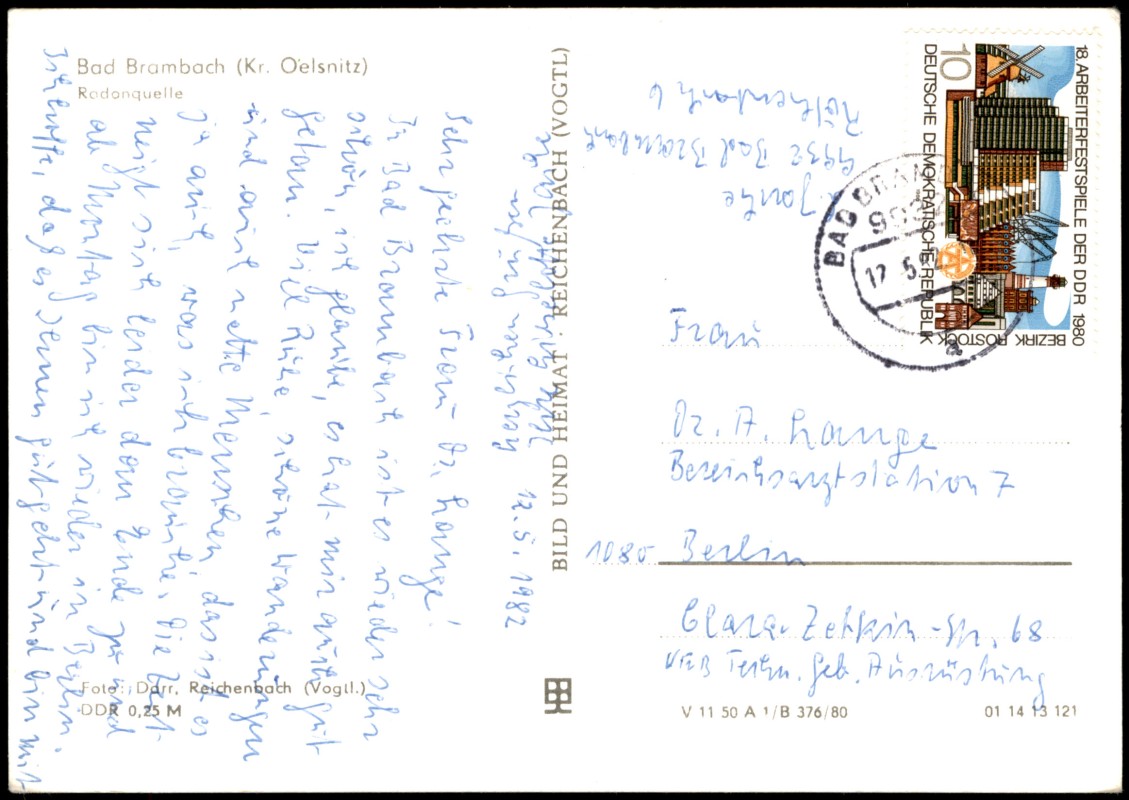 Bad Brambach (Kr. Oelsnitz)
Radonquelle
12.5.1982
Sehr geehrte Frau Dr. Lange!
In Bad Brambach ist es wieder sehr
schön, ich glaube, es hat mir auch gut
getan. Viel Ruhe, schöne Wanderungen
und auch nette Menschen, das ist es
ja auch, was ich brauche. Die Zeit
neigt sich leider dem Ende zu und
ab Montag bin ich wieder in Berlin.
Ich hoffe, daß es Ihnen gut geht und bin mit
Foto: Darr, Reichenbach (Vogtl.)
DDR 0,25 M
BILD UND HEIMAT · REICHENBACH (VOGTL)
Jantke
9932 Bad Brambach
Röthenbach 6
18. ARBEITERFESTSPIELE DER DDR 1980
BEZIRK ROSTOCK
DEUTSCHE DEMOKRATISCHE REPUBLIK
10
BAD BRAM
993
12.5.
a
Frau
Dr. A. Lange
Bereichsarztstation 7
1080 Berlin
Clara-Zetkin-Str. 68
VEB Techn. Geb. Ausrüstung
V 11 50 A 1/B 376/80
01 14 13 121